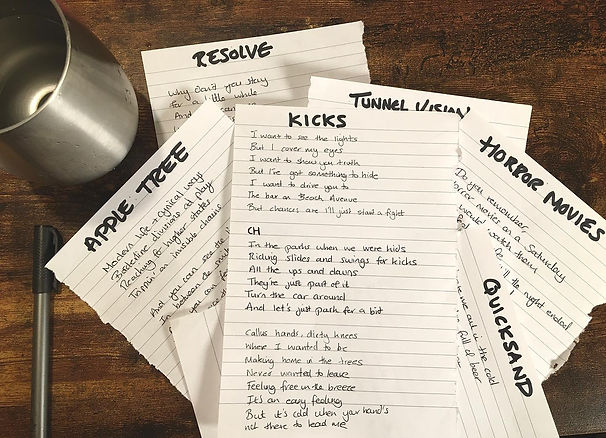 RESOLVE
Why don't you stay
for a little while
And
TUNNEL VISION
KICKS
I want to see the lights
But I cover my eyes
I want to show you truth
But I've got something to hide
I want to drive you to
The bar on Beach Avenue
But chances are I'll just start a fight
CH
In the parks when we were kids
Riding slides and swings for kicks
All the ups and downs
They're just part of it
Turn the car around
And let's just park for a bit
Callus hands, dirty knees
Where I wanted to be
Making home in the trees
Never wanted to leave
Feeling free in the breeze
It's an easy feeling
But it's cold when your hand's
not there to lead me
APPLE TREE
Modern life a cynical way
Borderline illusions at day
Reaching for higher states
Trippin on invisible chains
And you can see the
In between
you can
HORROR MOVIES
Do you remember,
horror movies on a Saturday
watch them
till the night ended
QUICKSAND
out in the cold
full of beer